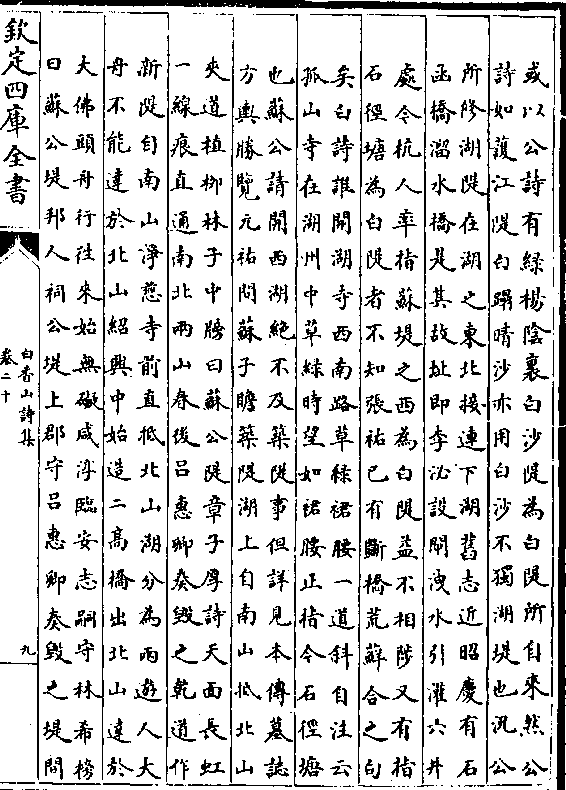 或以公詩有綠楊陰裏白沙隄為白隄所自來然公
詩如護江隄白蹋晴沙亦用白沙不獨湖堤也況公
所修湖隄在湖之東北接連下湖舊志近昭慶有石
函橋溜水橋是其故址即李泌設閘洩水引灌六井
處今杭人率指蘇堤之西為白隄益不相陟又有指
石徑塘為白隄者不知張祜已有斷橋荒蘚合之句
矣白詩誰開湖寺西南路草綠裙腰一道斜自注云
孤山寺在湖州中草綠時望如裙腰正指今石徑塘
也蘇公請開西湖絕不及築隄事但詳見本傳墓誌
方輿勝覽元祐間蘇子瞻築隄湖上自南山抵北山
夾道植柳林子中牓曰蘇公隄章子厚詩天面長虹
一線痕直通南北兩山春後呂惠卿奏毀之乾道作
新隄自南山淨慈寺前直抵北山湖分為兩遊人大
舟不能達於北山紹興中始造二高橋出北山達於
大佛頭舟行往來始無礙咸淳臨安志嗣守林希榜
曰蘇公堤邦人祠公堤上郡守呂惠卿奏毀之堤間
欽定四庫全書
白香山詩集
卷二十
九